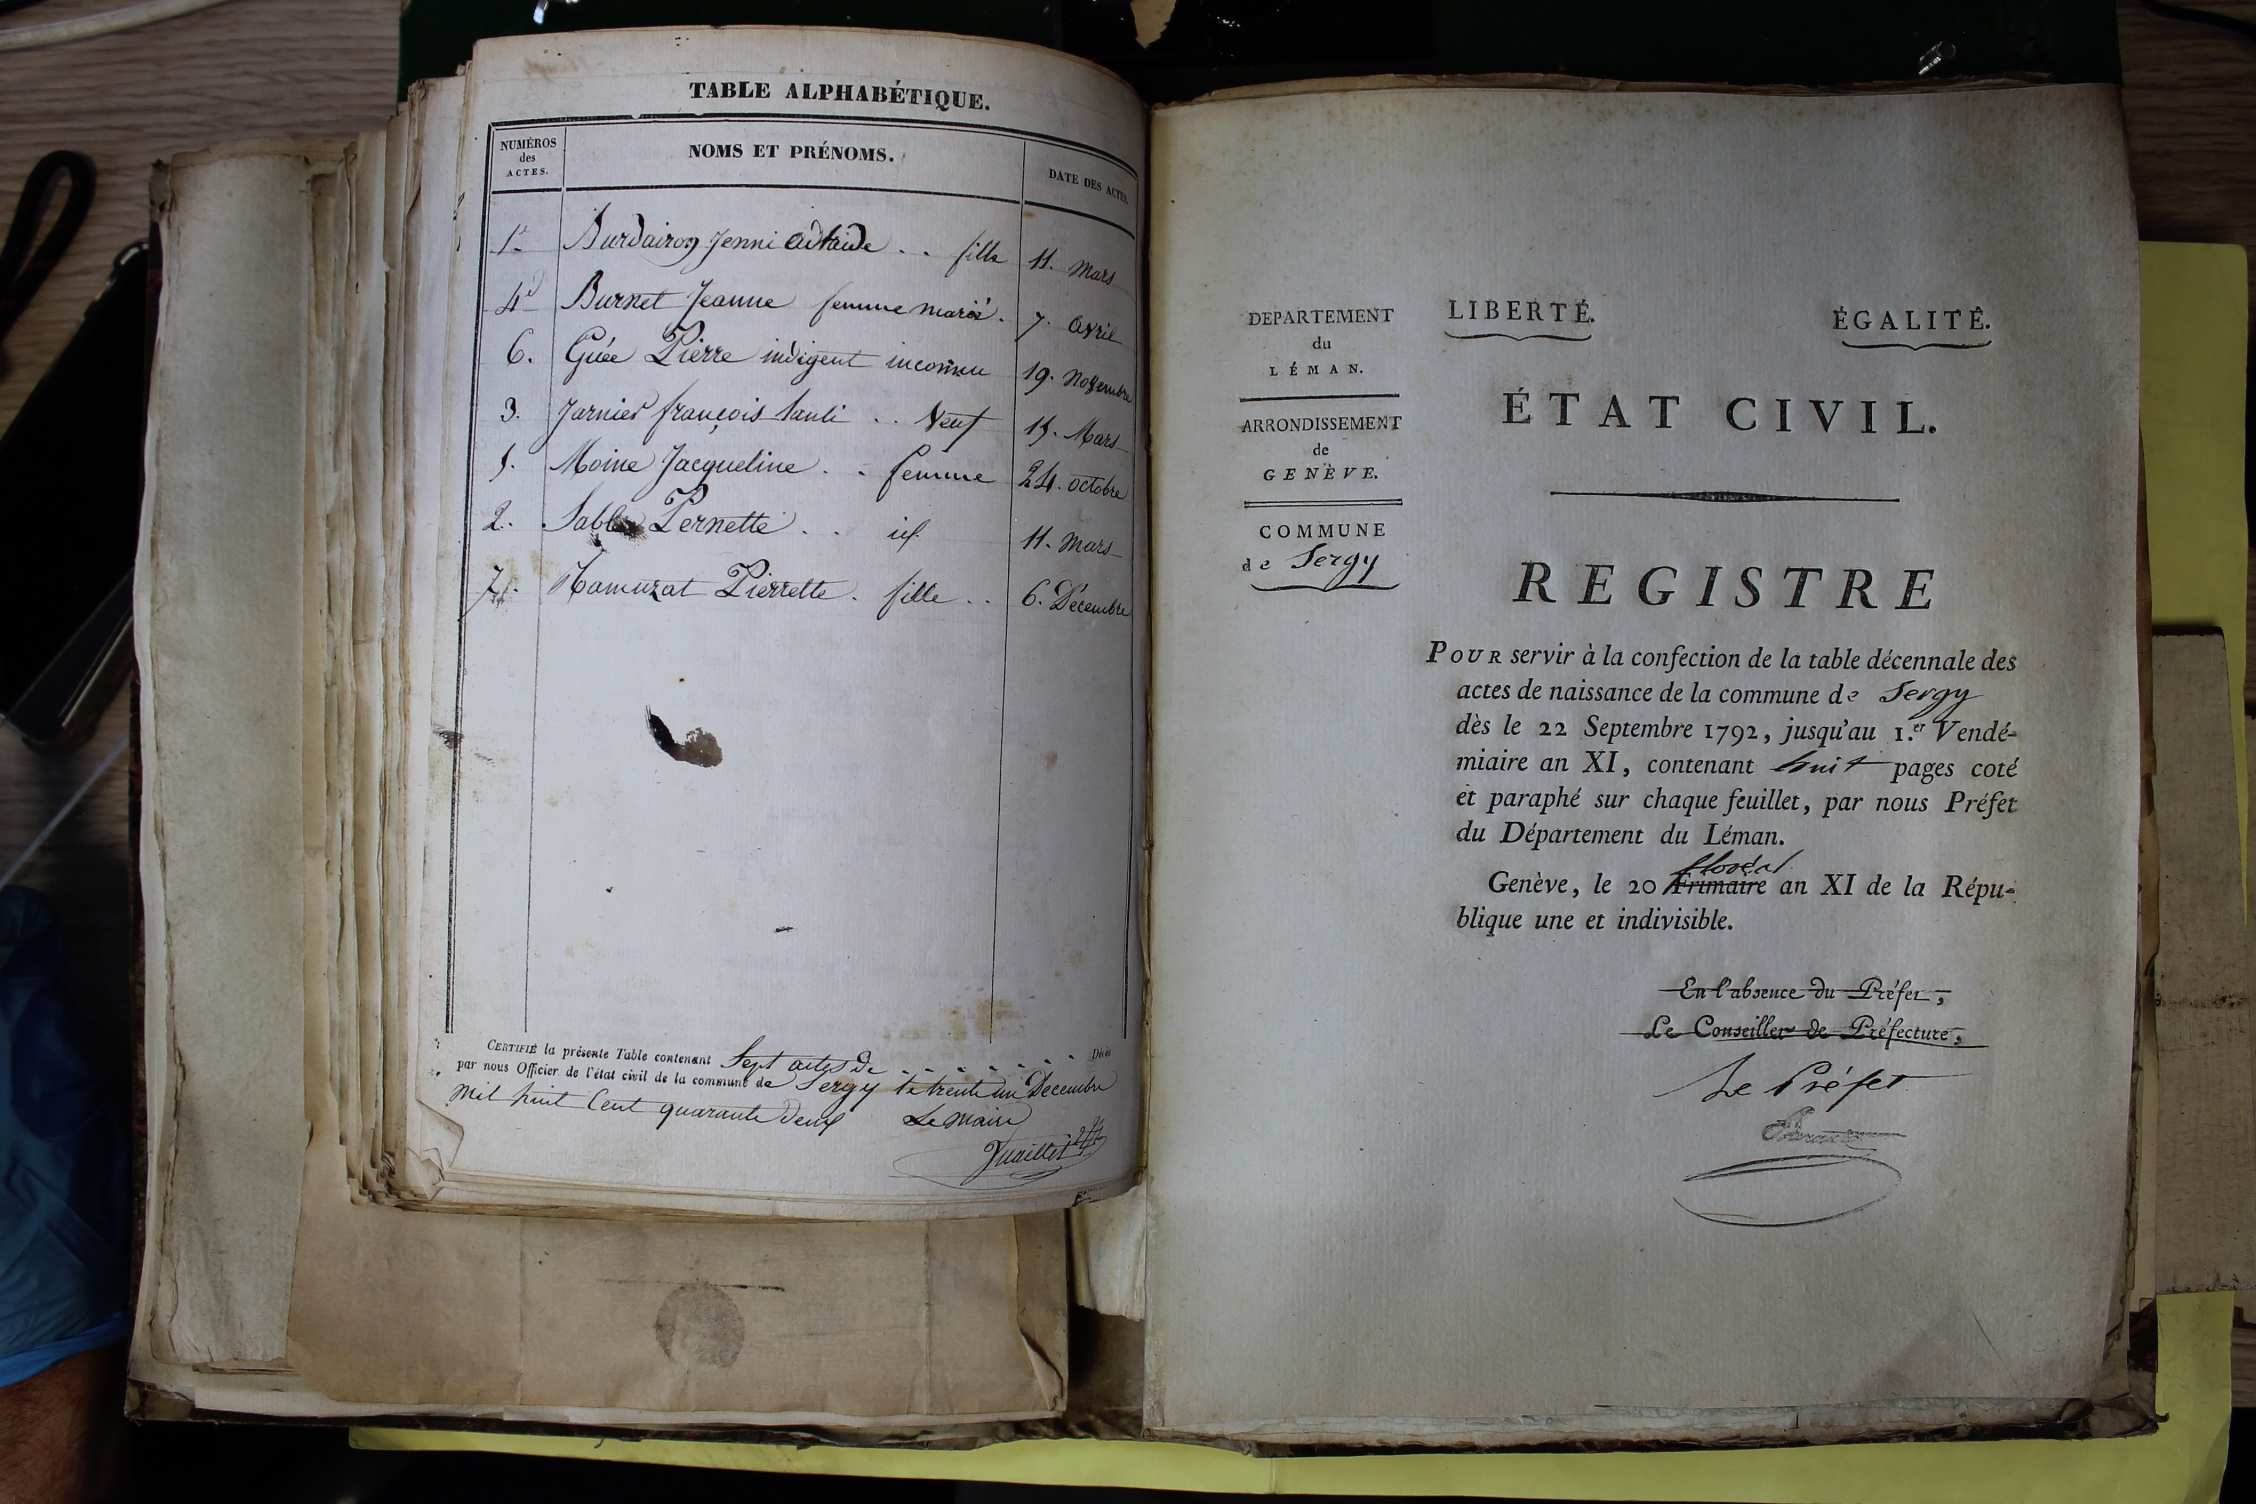 TABLE ALPHABÉTIQUE.
NUMÉROS des ACTES. NOMS ET PRÉNOMS. DATE DES ACTES.
1r Burdairon Jenni adtaide .. fille 11. Mars
4 Burnet Jeanne femme marié. 7. Avril
6. Guée Pierre indigent inconnu 19. Novembre
3. Jarnier françois Pauli .. Veuf 15. Mars
5. Moine Jacqueline .. femme 24. octobre
2. Pernette .. id. 11. Mars
7. Pierrette. fille .. 6. Décembre
CERTIFIÉ la présente Table contenant Sept actes de Décès
par nous Officier de l'état civil de la commune de Sergy le trente un Decembre
Mil huit Cent quarante deux Le Maire
DEPARTEMENT
du
LÉMAN.
ARRONDISSEMENT
de
GENÈVE.
COMMUNE
de Sergy
LIBERTÉ. ÉGALITÉ.
ÉTAT CIVIL.
REGISTRE
POUR servir à la confection de la table décennale des
actes de naissance de la commune de Sergy
dès le 22 Septembre 1792, jusqu'au 1.er Vendé-
miaire an XI, contenant huit pages coté
et paraphé sur chaque feuillet, par nous Préfet
du Département du Léman.
floréal
Genève, le 20 Frimaire an XI de la Répu-
blique une et indivisible.
En l'absence du Préfet,
Le Conseiller de Préfecture,
Le Préfet